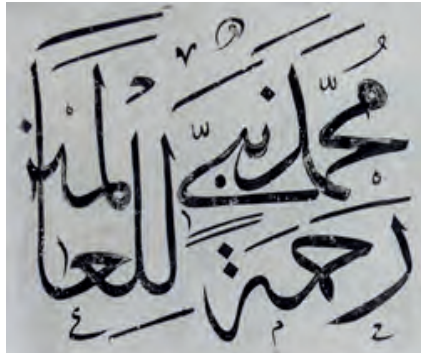 مُحَمَّد نَبِيّ
رحمة للعالمين